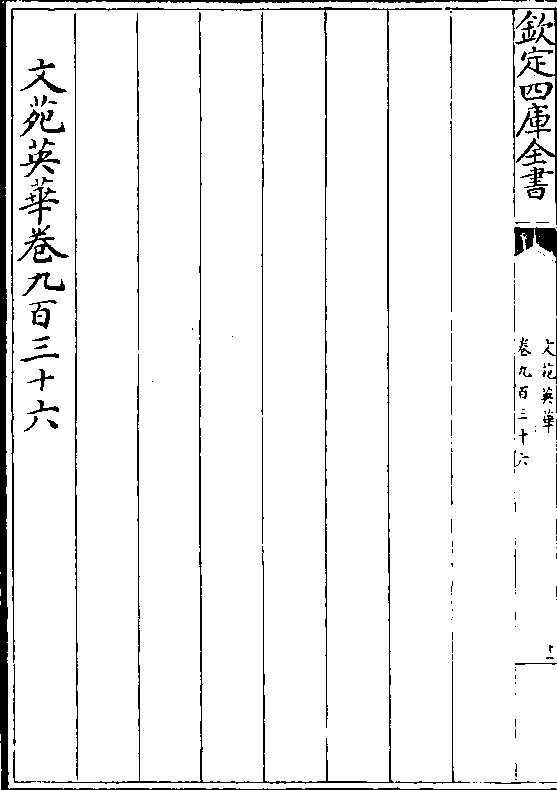 欽定四庫全書
文苑英華
卷九百三十六
十一
文苑英華卷九百三十六